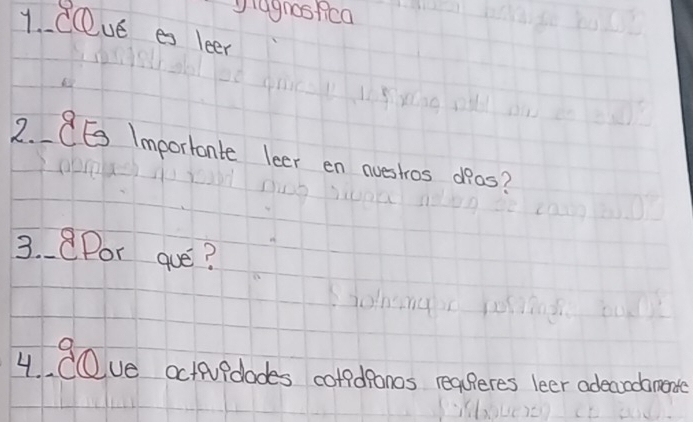 Diagnostica
1.- ¿Qué es leer
2.- ¿Es Importante leer en nuestros dias?
3.- ¿Por qué?
4.- ¿Que actividades cotidianas requieres leer adeacadamente